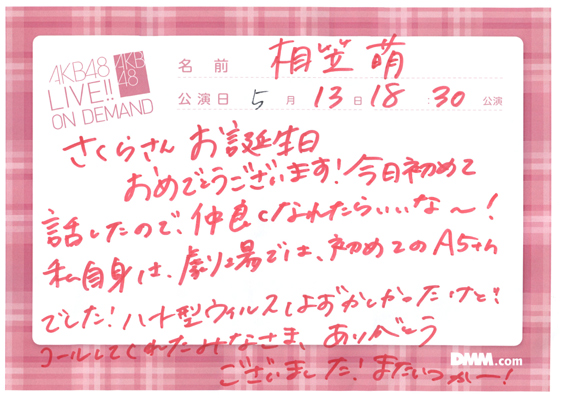 AKB48
LIVE!!
ON DEMAND
AKB
48
名前 相笠萌
公演日 5月13日18:30公演
さくらさん お誕生日
おめでとうございます！今日初めて
話したので、仲良くなれたらいいな〜！
私自身は、劇場では、初めてのA5さん
でした！ハート型ウィルスはずかしかったけど！！
コールしてくれたみなさま、ありがとう
ございました！またいつかー！
DMM.com